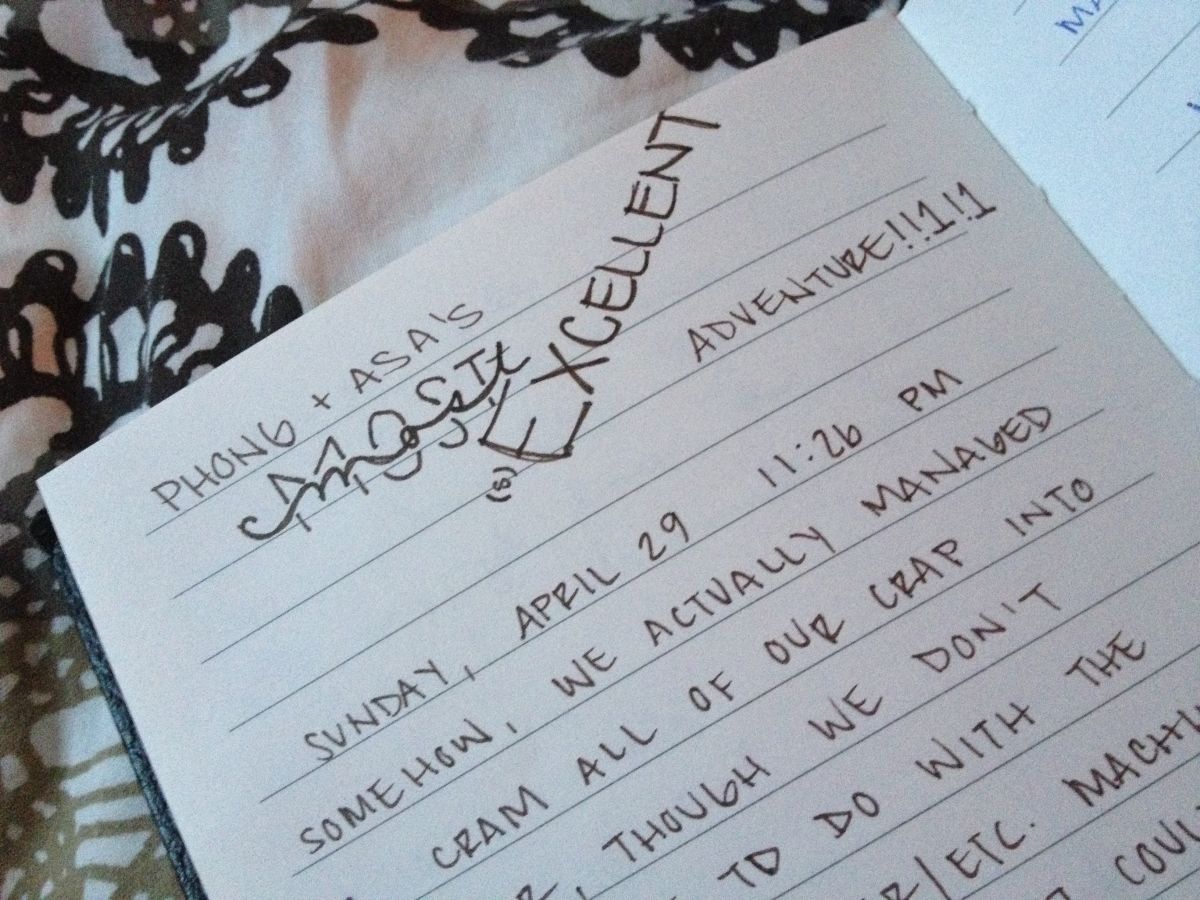 PHONG + ASA'S
MOST
(S)
EXCELLENT
ADVENTURE!!¡1!1
SUNDAY, APRIL 29 11:26 PM
SOMEHOW, WE ACTUALLY MANAGED
CRAM ALL OF OUR CRAP INTO
THOUGH WE DON'T
TO DO WITH THE
/ETC.